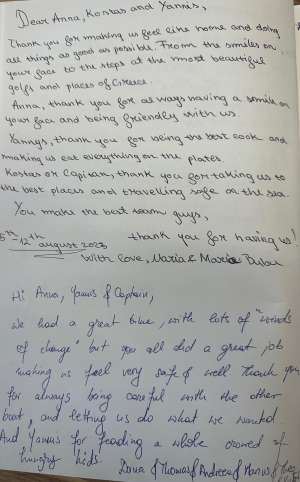 Dear Anna, Kostas and Yannis,
Thank you for making us feel like home and doing
all things as good as possible. From the smiles on
your face to the steps at the most beautiful
golfs and places of Greece.
Anna, thank you for always having a smile on
your face and being friendly with us.
Yannys, thank you for being the best cook and
making us eat everything on the plates.
Kostas or Capitan, thank you for taking us to
the best places and travelling safe on the sea.
You make the best team guys,
thank you for having us!
5th-12th august 2023
With love, Maria & Maria
Hi Anna, Yannis & Captain,
we had a great time, with lots of "winds
of change" but you all did a great job
making us feel very safe & well. Thank you
for always being careful with the other
boat, and letting us do what we wanted
And Yannis for feeding a whole crowd of
hungry kids.
& Thomas & Andreea & Marius &